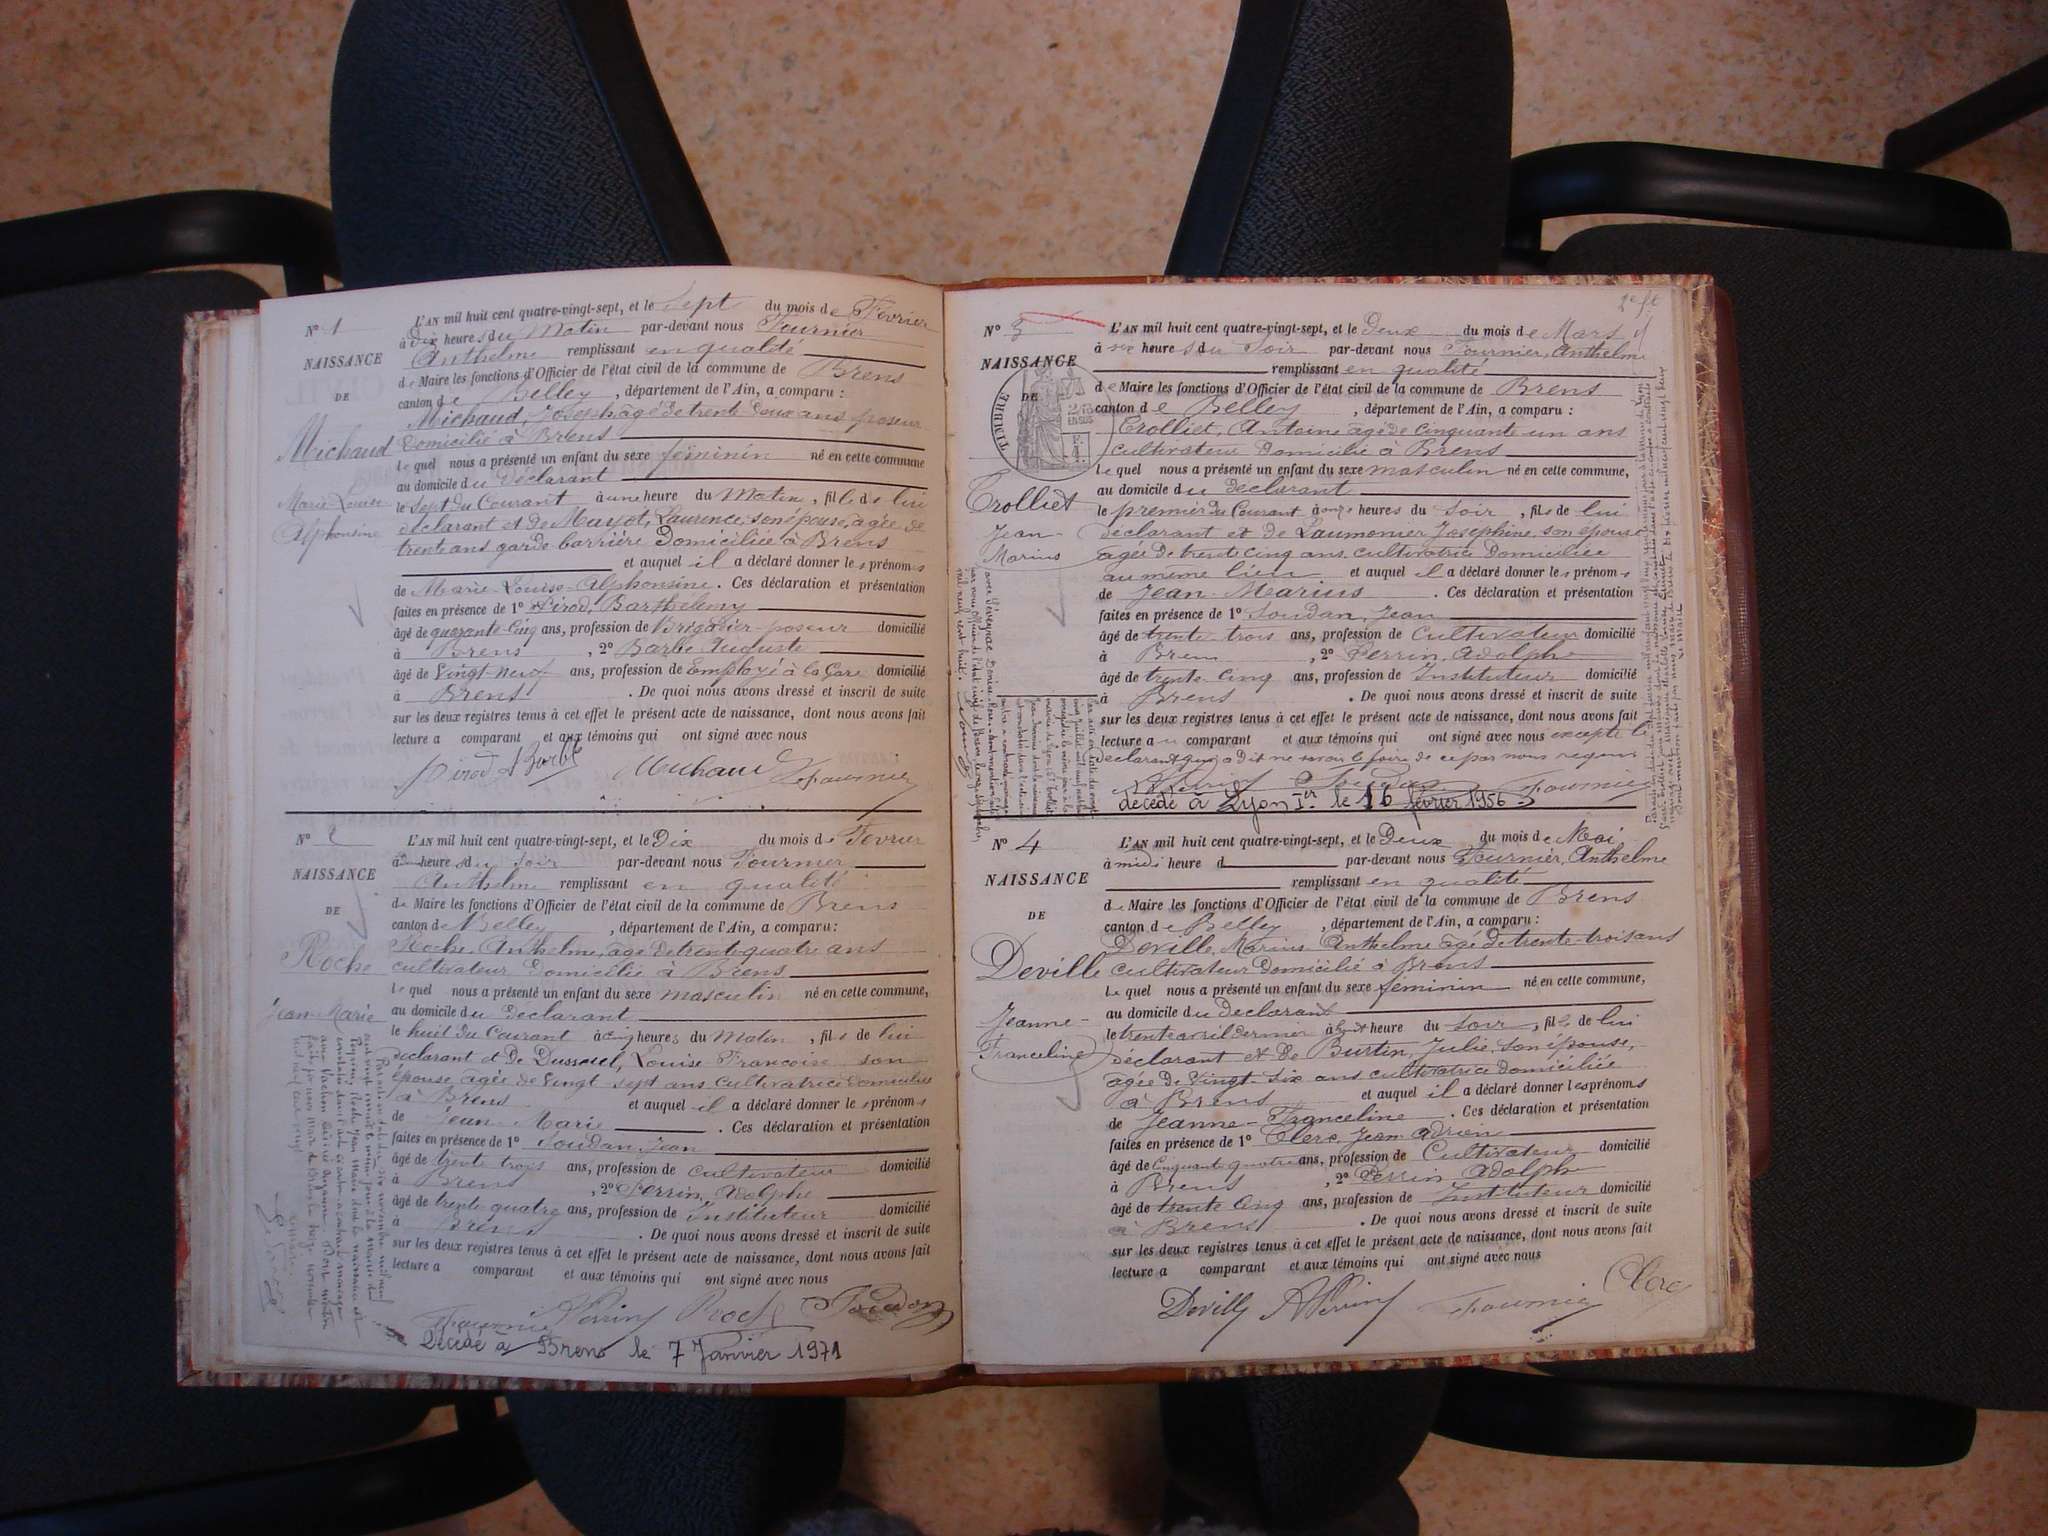 N° 1
NAISSANCE
DE
Michaud
Marie-Louise
Alphonsine
L'AN mil huit cent quatre-vingt-sept, et le Sept du mois de Fevrier
à Dix heures du Matin par-devant nous Fournier
Anthelme remplissant en qualité
de Maire les fonctions d'Officier de l'état civil de la commune de Brens
canton de Belley, département de l'Ain, a comparu :
Michaud, Joseph agé de trente deux ans poseur
domicilié à Brens
Le quel nous a présenté un enfant du sexe féminin né en cette commune
au domicile du déclarant
le Sept du Courant à une heure du Matin, fille de lui
déclarant et de Mayot, Laurence, son épouse, agée de
trente ans garde barrière Domiciliée à Brens
et auquel il a déclaré donner les prénoms
de Marie-Louise-Alphonsine. Ces déclaration et présentation
faites en présence de 1° Pirod, Barthelemy
âgé de quarante-cinq ans, profession de Brigadier-poseur domicilié
à Brens, 2° Barbe Auguste
âgé de Vingt-neuf ans, profession de Employé à la Gare domicilié
à Brens. De quoi nous avons dressé et inscrit de suite
sur les deux registres tenus à cet effet le présent acte de naissance, dont nous avons fait
lecture a comparant et aux témoins qui ont signé avec nous
Pirod Barbe Michaud Fournier
N° 2
NAISSANCE
DE
Roche
Jean-Marie
L'AN mil huit cent quatre-vingt-sept, et le Dix du mois de Fevrier
heure du Soir par-devant nous Fournier
Anthelme remplissant en qualité
de Maire les fonctions d'Officier de l'état civil de la commune de Brens
canton de Belley, département de l'Ain, a comparu :
Roche, Anthelme, age de trente quatre ans
cultivateur domicilié à Brens
Le quel nous a présenté un enfant du sexe masculin né en cette commune,
au domicile du déclarant
le huit du Courant à cinq heures du Matin, fils de lui
déclarant et de Dussuel, Louise Francoise son
épouse, agée de Vingt sept ans Cultivatrice domiciliée
à Brens et auquel il a déclaré donner les prénoms
de Jean-Marie. Ces déclaration et présentation
faites en présence de 1° Soudan Jean
âgé de trente trois ans, profession de cultivateur domicilié
à Brens, 2° Perrin, Adolphe
âgé de trente quatre ans, profession de Instituteur domicilié
à Brens. De quoi nous avons dressé et inscrit de suite
sur les deux registres tenus à cet effet le présent acte de naissance, dont nous avons fait
lecture a comparant et aux témoins qui ont signé avec nous
Fournier APerrin Roche Soudan
Décédé à Brens le 7 Janvier 1971
N° 3
NAISSANCE
DE
TIMBRE
Trolliet
Jean-
Marius
L'AN mil huit cent quatre-vingt-sept, et le Deux du mois de Mars
à six heures du Soir par-devant nous Fournier, Anthelme
remplissant en qualité
de Maire les fonctions d'Officier de l'état civil de la commune de Brens
canton de Belley, département de l'Ain, a comparu :
Trolliet, Antoine agé de Cinquante-un ans
cultivateur Domicilié à Brens
Le quel nous a présenté un enfant du sexe masculin né en cette commune,
au domicile du déclarant
le premier du Courant à onze heures du soir, fils de lui
déclarant et de Laumonier Josephine, son épouse
agée de trente cinq ans cultivatrice domiciliée
au même lieu et auquel il a déclaré donner les prénoms
de Jean-Marius. Ces déclaration et présentation
faites en présence de 1° Soudan, Jean
âgé de trente trois ans, profession de Cultivateur domicilié
à Brens, 2° Perrin, Adolphe
âgé de trente-cinq ans, profession de Instituteur domicilié
à Brens. De quoi nous avons dressé et inscrit de suite
sur les deux registres tenus à cet effet le présent acte de naissance, dont nous avons fait
lecture au comparant et aux témoins qui ont signé avec nous excepté le
déclarant qui a dit ne savoir le faire de ce par nous requis
APerrin Soudan Fournier
décédé à Lyon 1er le 16 février 1956
N° 4
NAISSANCE
DE
Deville
Jeanne-
Franceline
L'AN mil huit cent quatre-vingt-sept, et le Deux du mois de Mai
à midi heure d par-devant nous Fournier, Anthelme
remplissant en qualité
de Maire les fonctions d'Officier de l'état civil de la commune de Brens
canton de Belley, département de l'Ain, a comparu :
Deville, Marius-Anthelme agé de trente-trois ans
cultivateur domicilié à Brens
Le quel nous a présenté un enfant du sexe féminin né en cette commune,
au domicile du déclarant
le trente avril dernier à huit heure du soir, fille de lui
déclarant et de Burtin, Julie, son épouse,
agée de Vingt-six ans cultivatrice domiciliée
à Brens et auquel il a déclaré donner les prénoms
de Jeanne-Franceline. Ces déclaration et présentation
faites en présence de 1° Clerc, Jean Adrien
âgé de Cinquante quatre ans, profession de Cultivateur domicilié
à Brens, 2° Perrin Adolphe
âgé de trente cinq ans, profession de Instituteur domicilié
à Brens. De quoi nous avons dressé et inscrit de suite
sur les deux registres tenus à cet effet le présent acte de naissance, dont nous avons fait
lecture a comparant et aux témoins qui ont signé avec nous
Deville APerrin Fournier Clerc